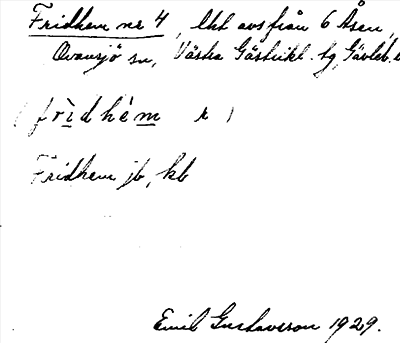 Fridhem nr 4, lht avs från 6 Åsen,
Ovansjö sn, Västra Gästrikl. tg, Gävleb.
( fri̱dhèm̱ r )
Fridhem jb, kb
Emil Gustavsson 1929.